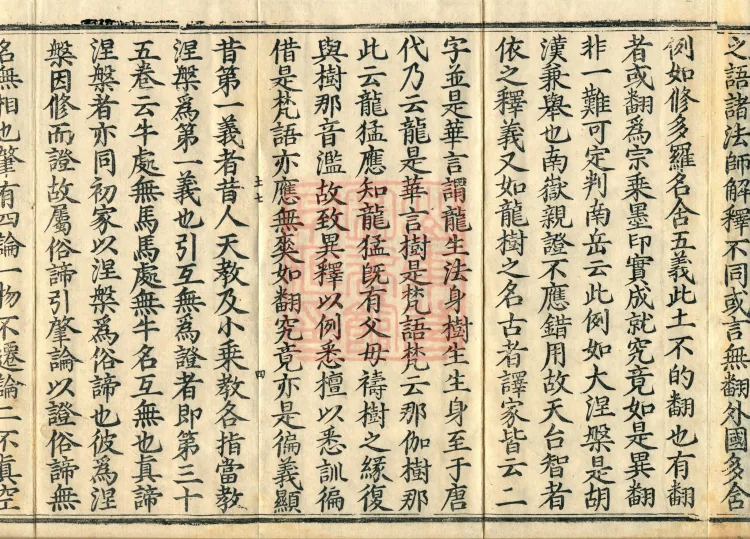 之語諸法師解釋不同或言無翻外國多含
例如修多羅名含五義此土不的翻也有翻
者或翻爲宗乘墨印實成就究竟如是異翻
非一難可定判南岳云此例如大涅槃是胡
漢兼舉也南嶽親證不應錯用故天台智者
依之釋義又如龍樹之名古者譯家皆云二
字並是華言謂龍生法身樹生生身至于唐
代乃云龍是華言樹是梵語梵云那伽樹那
此云龍猛應知龍猛旣有父母禱樹之緣復
與樹那音濫故致異釋以例悉檀以悉訓徧
借是梵語亦應無爽如翻究竟亦是徧義顯
土七
四
昔第一義者昔人天教及小乘教各指當教
涅槃爲第一義也引互無爲證者即第三十
五卷云牛處無馬馬處無牛名互無也眞諦
涅槃者亦同初家以涅槃爲俗諦也彼爲涅
槃因修而證故屬俗諦引肇論以證俗諦無
名無相也肇有四論一物不遷論二不眞空